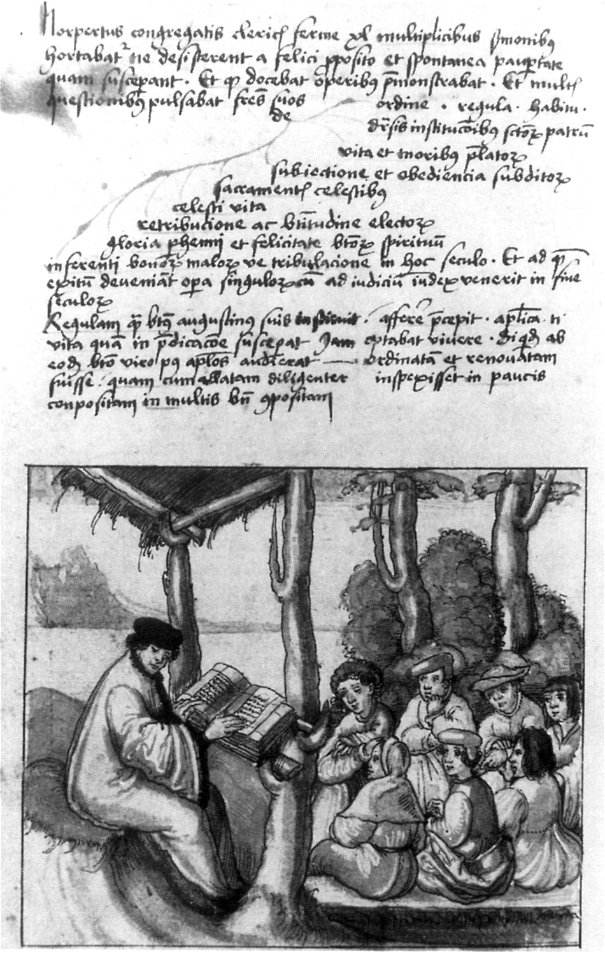 Norpertus congregatis clericis ferme xl multiplicibus sermonibus
hortabatr ne desisterent a felici proposito et spontanea paupertate
quam susceperant · Et quod docebat operibus premonstrabat · Et multis
questionibus pulsabat fres suos ordine · regula · habitu ·
de
diversis institucionibus sctorum patrum
vita et moribus prelatorum
subiectione et obediencia subditorum
sacramentis celestibus
celesti vita
retribucione ac btitudine electorum
gloria et felicitate btorum spirituum
inferenti bonorum malorum ve tribulacione in hoc seculo · Et ad quem
exitum deveniant opera singulorum cum ad iudicium iudex venerit in fine
seculorum
Regulam quam btus augustinus suis · afferre precepit · aplica · ti
vita quam in predicacoe susceperat Jam optabat vivere · ab
eodem bto viro post aplos audierat ordinatam et renovatam
fuisse · quam cum allatam diligenter inspexisset in paucis
conpositam in multis bn